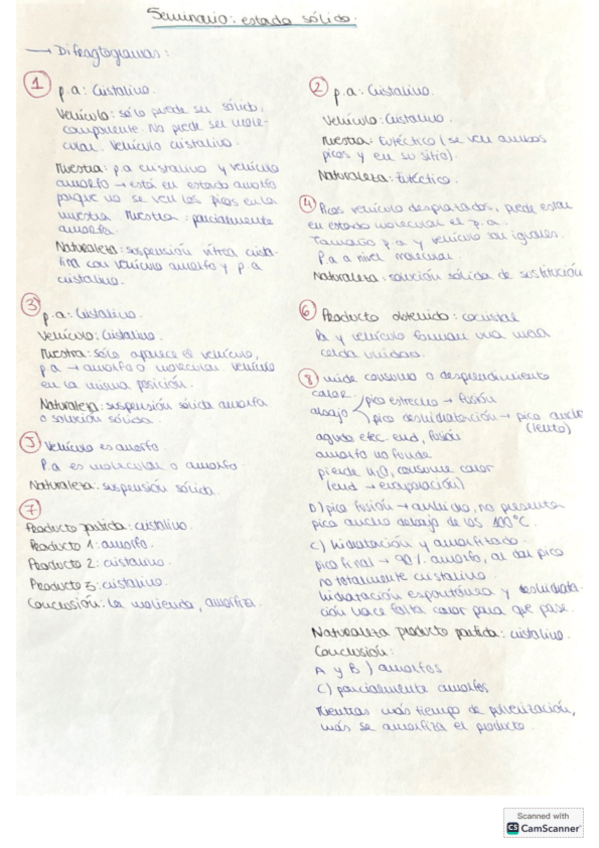 Seminario: estado sólido.
→ Difragtogramas:
1 p.a: Cristalino.
Vehículo: sólo puede ser sólido,
componente. No puede ser mole-
cular. Vehículo cristalino.
Muestra: p.a cristalino y vehículo
amorfo → está en estado amorfo
porque no se ven los picos en la
muestra. Muestra: parcialmente
amorfa.
Naturaleza: suspensión vítrea crista-
lina con vehículo amorfo y p.a
cristalino.
3 p.a: Cristalino.
Vehículo: Cristalino.
Muestra: sólo aparece el vehículo,
p.a → amorfo o molecular. vehículo
en la misma posición.
Naturaleza: suspensión sólida amorfa
o solución sólida.
5 Vehículo es amorfo.
P.a es molecular o amorfo.
Naturaleza: suspensión sólida.
7
Producto partida: cristalino.
Producto 1: amorfo.
Producto 2: cristalino.
Producto 3: cristalino.
Conclusión: La molienda, amorfiza.
2 p.a: Cristalino.
Vehículo: Cristalino.
Muestra: Eutéctico (se ven ambos
picos y en su sitio).
Naturaleza: Eutéctico.
4 Picos vehículo desplazados, puede estar
en estado molecular el p.a.
Tamaño p.a y vehículo son iguales.
P.a a nivel molecular.
Naturaleza: solución sólida de sustitución
6 Producto obtenido: cocristal
Pa y vehículo forman una
celda unidad.
8 mide consumo o desprendimiento
calor
abajo pico estrecho → fusión
pico deshidratación → pico ancho
(lento)
aguda etc. end, fusión
amorfo no funde
pierde H₂O, consume calor
(end → evaporación)
b) pico fusión → anhidro, no presenta
pico ancho debajo de los 100°C.
c) hidratación y amorfizado.
pico final → 90% amorfo, al dar pico
no totalmente cristalino.
hidratación espontánea y deshidrata-
ción hace falta calor para que pase.
Naturaleza producto partida: cristalino.
Conclusión:
A y B) amorfos
C) parcialmente amorfos
Mientras más tiempo de pulverización,
más se amorfiza el producto.
Scanned with
CS CamScanner